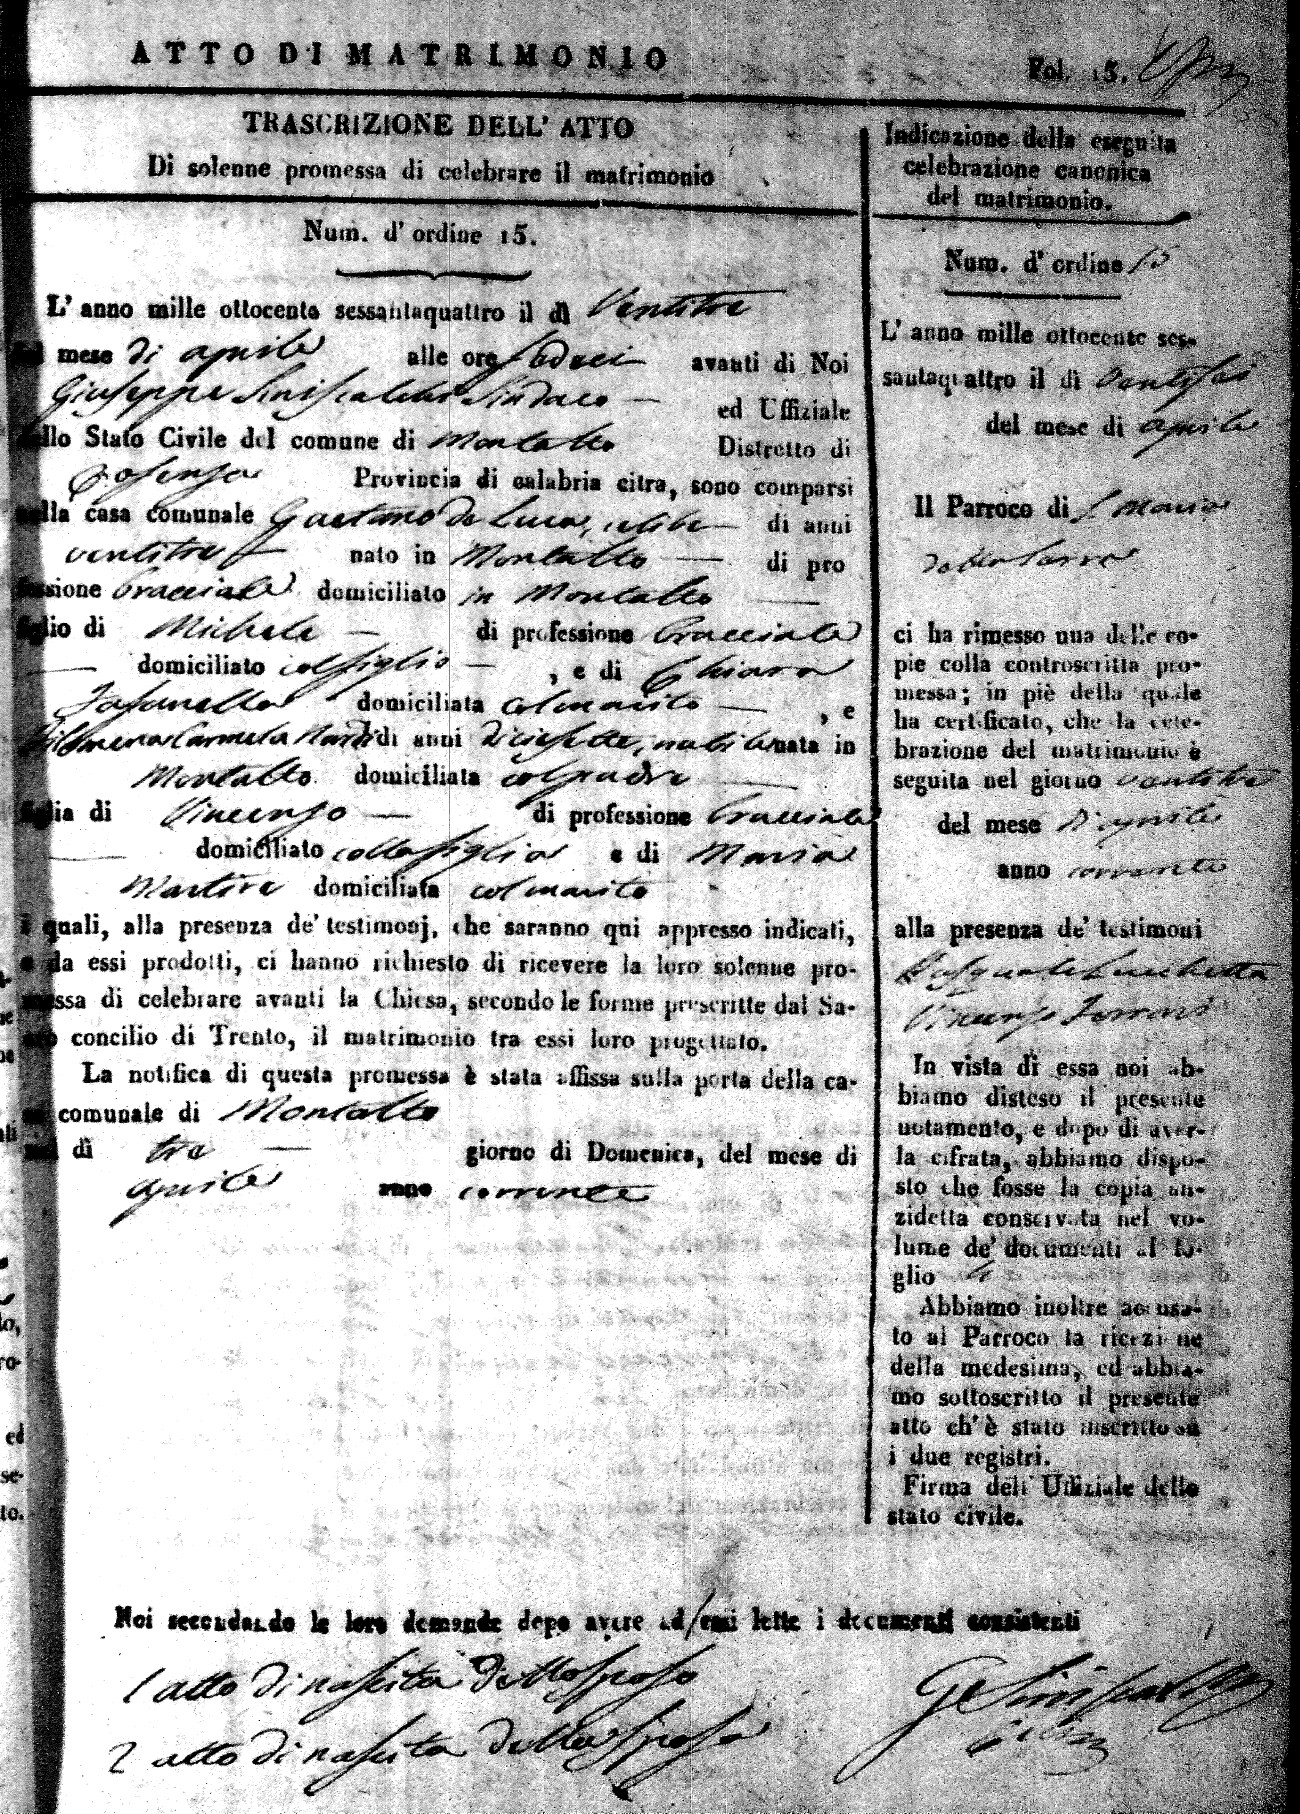 ATTO DI MATRIMONIO
Fol. 15.
TRASCRIZIONE DELL' ATTO
Di solenne promessa di celebrare il matrimonio
Num. d' ordine 15.
L' anno mille ottocento sessantaquattro il dì Ventitre
mese di aprile alle ore sedici avanti di Noi
Giuseppe Siniscalchi Sindaco ed Uffiziale
dello Stato Civile del comune di Montalto Distretto di
Cosenza Provincia di calabria citra, sono comparsi
nella casa comunale Gaetano de Luca, celibe di anni
ventitre nato in Montalto di pro
fessione bracciale domiciliato in Montalto
figlio di Michele di professione bracciale
domiciliato col figlio , e di Chiara
domiciliata col marito , e
Filomena Carmela di anni diciasette, nubile nata in
Montalto domiciliata col padre
figlia di Vincenzo di professione bracciale
domiciliato colla figlia e di Maria
Martire domiciliata col marito
i quali, alla presenza de' testimonj, che saranno qui appresso indicati,
e da essi prodotti, ci hanno richiesto di ricevere la loro solenne pro-
messa di celebrare avanti la Chiesa, secondo le forme prescritte dal Sa-
cro concilio di Trento, il matrimonio tra essi loro progettato.
La notifica di questa promessa è stata affissa sulla porta della ca-
sa comunale di Montalto
nel dì tre giorno di Domenica, del mese di
aprile anno corrente
Indicazione della eseguita
celebrazione canonica
del matrimonio.
Num. d' ordine 15
L' anno mille ottocento ses-
santaquattro il dì Ventisei
del mese di aprile
Il Parroco di S. Maria
della Serra
ci ha rimesso una delle co-
pie colla controscritta pro-
messa; in piè della quale
ha certificato, che la cele-
brazione del matrimonio è
seguita nel giorno ventitre
del mese di aprile
anno corrente
alla presenza de' testimoni
Pasquale Lucchetta
Vincenzo Ferrari
In vista di essa noi ab-
biamo disteso il presente
notamento, e dopo di aver-
la cifrata, abbiamo dispo-
sto che fosse la copia an-
zidetta conservata nel vo-
lume de' documenti al fo-
glio
Abbiamo inoltre accusa-
to al Parroco la ricezione
della medesima, ed abbia-
mo sottoscritto il presente
atto ch' è stato inscritto su
i due registri.
Firma dell' Uffiziale dello
stato civile.
Noi secondando le loro demande dopo avere ad essi lette i documenti consistenti
1 atto di nascita dello sposo
2 atto di nascita della sposa
Ge Siniscalchi